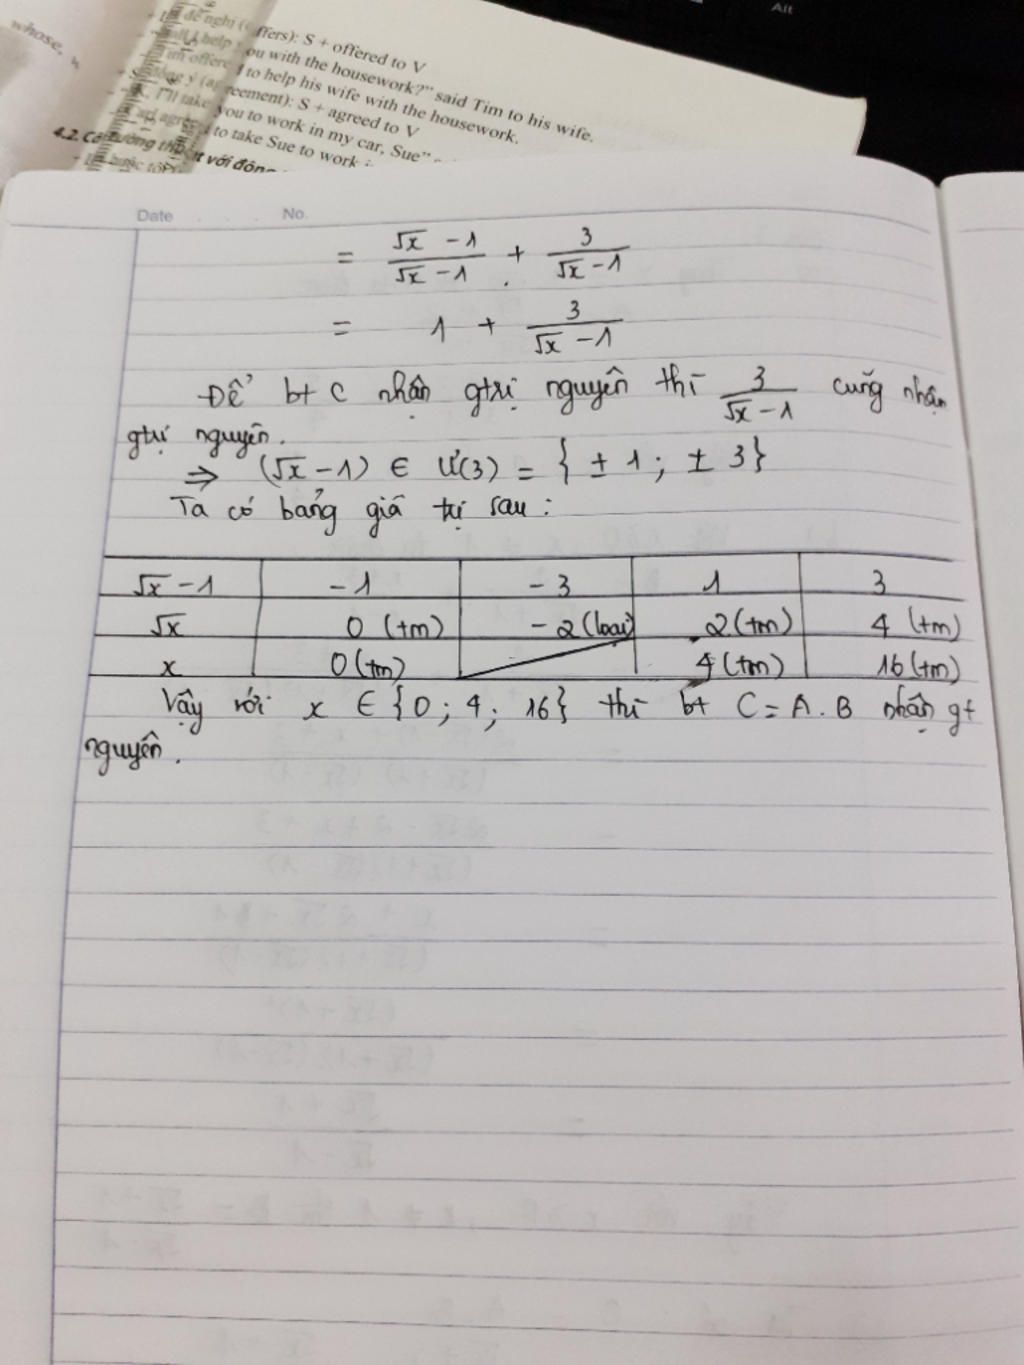 Alt
whose,
đề nghị (offers): S + offered to V
help you with the housework?" said Tim to his wife.
Tim offered to help his wife with the housework.
(agreement): S + agreed to V
I'll take you to work in my car, Sue"
agreed to take Sue to work
4.2. Câu tường thuật với động
Date No.
= (√x - 1)/(√x - 1) + 3/(√x - 1)
= 1 + 3/(√x - 1)
Để bt C nhận gtrị nguyên thì 3/(√x - 1) cũng nhận
gtrị nguyên.
⇒ (√x - 1) ∈ Ư(3) = { ± 1 ; ± 3 }
Ta có bảng giá trị sau :
√x - 1 -1 -3 1 3
√x 0 (tm) -2 (loại) 2 (tm) 4 (tm)
x 0 (tm) 4 (tm) 16 (tm)
Vậy với x ∈ { 0 ; 4 ; 16 } thì bt C = A . B nhận gt
nguyên.